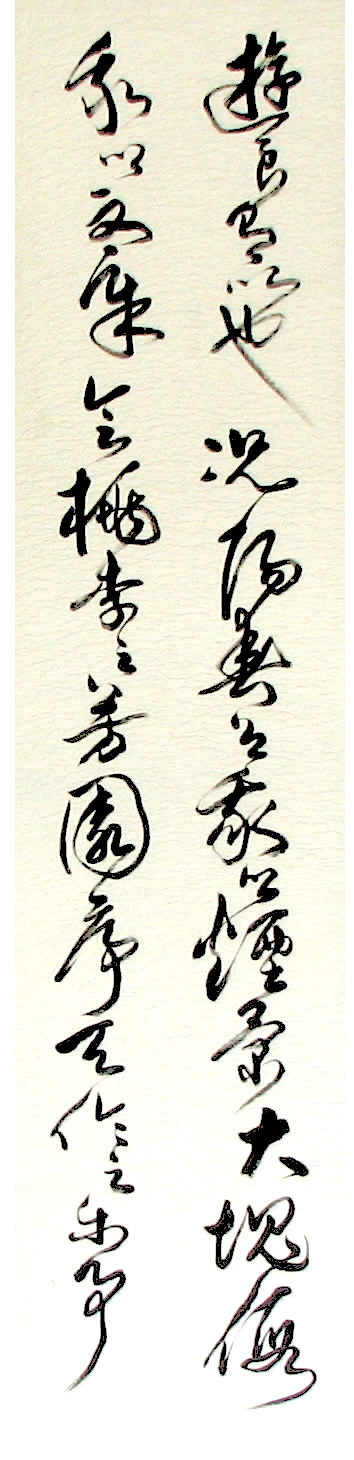 遊良有以也況陽春召我以煙景大塊假
我以文章會桃李之芳園序天倫之樂事